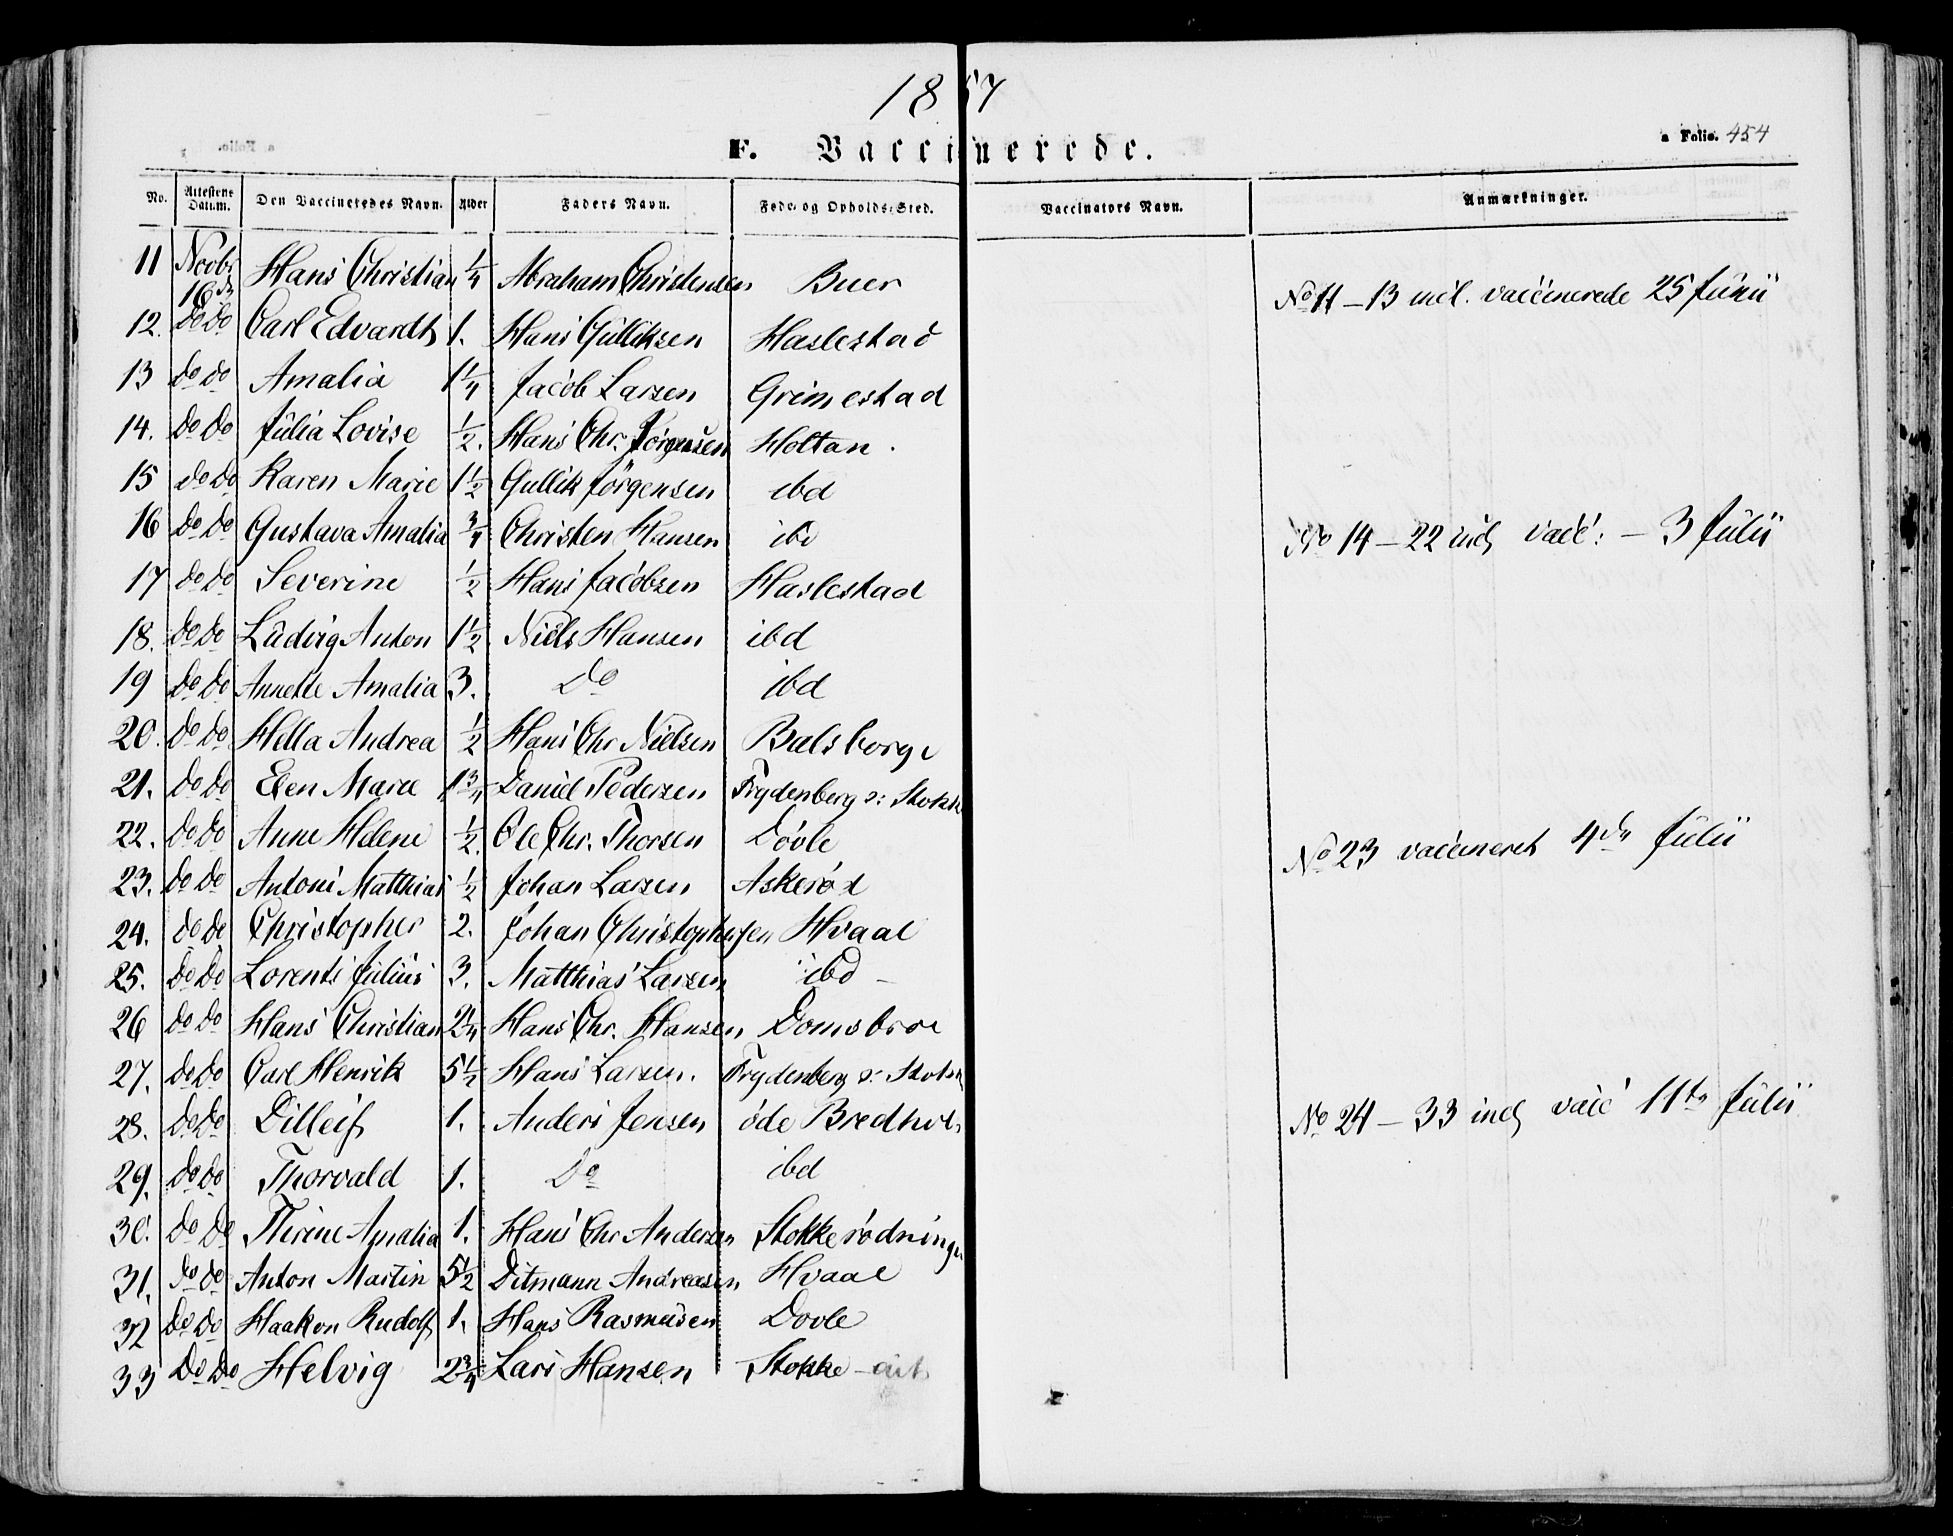 1857
F. Vaccinerede.
a Folio. 454
No. Attestens Datum. Den Vaccineredes Navn. Alder Faders Navn. Føde- og Opholds-Sted. Vaccinators Navn. Anmærkninger.
11 Novbr 16de Hans Christian 1/4 Abraham Christensen Buer
No 11 – 13 incl. vaccinerede 25 Junii
12. do do Carl Edvardt 1. Hans Gulliksen Haslestad
13 do do Amalia 1 1/4 Jacob Larsen Grimestad
14. do do Julia Lovise 1/2. Hans Chr. Jörgensen Holtan.
15 do do Karen Marie 1 1/2 Gullik Jörgensen ibd
16 do do Gustava Amalia 3/4 Christen Hansen ibd
No 14 – 22 incl vacc: – 3 Julii
17 do do Severine 1/2 Hans Jacobsen Haslestad
18. do do Ludvig Anton 1 1/2 Niels Hansen ibd
19 do do Annette Amalia 3. Do ibd
20. do do Hella Andrea 1/2 Hans Chr Nielsen Bulsborge
21. do do Elen Marie 1 3/4 Daniel Pedersen Frydenberg v: Stokke
22. do do Anne Helene 1/2. Ole Chr. Thorsen Dovle
No 23 vaccineret 4de Julii
23. do do Antoni Matthias 1/2 Johan Larsen Askerød
24. do do Christopher 2. Johan Christophersen Hvaal
25. do do Lorents Julius 3. Matthias Larsen ibd –
26 do do Hans Christian 2 1/4 Hans Chr. Hansen Domsbroe
27. do do Carl Henrik 5 1/2 Hans Larsen. Frydenberg v: Stokke
28. do do Dilleif 1. Anders Jensen öde Bredhol
No 24 – 33 incl vacc 11te Julii
29. do do Thorvald 1. Do ibd
30. do do Thrine Amalia 1. Hans Chr Andersen Stokkerødninge
31. do do Anton Martin 5 1/2 Ditmann Andreasen Hvaal
32 do do Haakon Rudolf 1. Hans Rasmusen Dovle
33 do do Helvig 2 3/4 Lars Hansen Stokke –